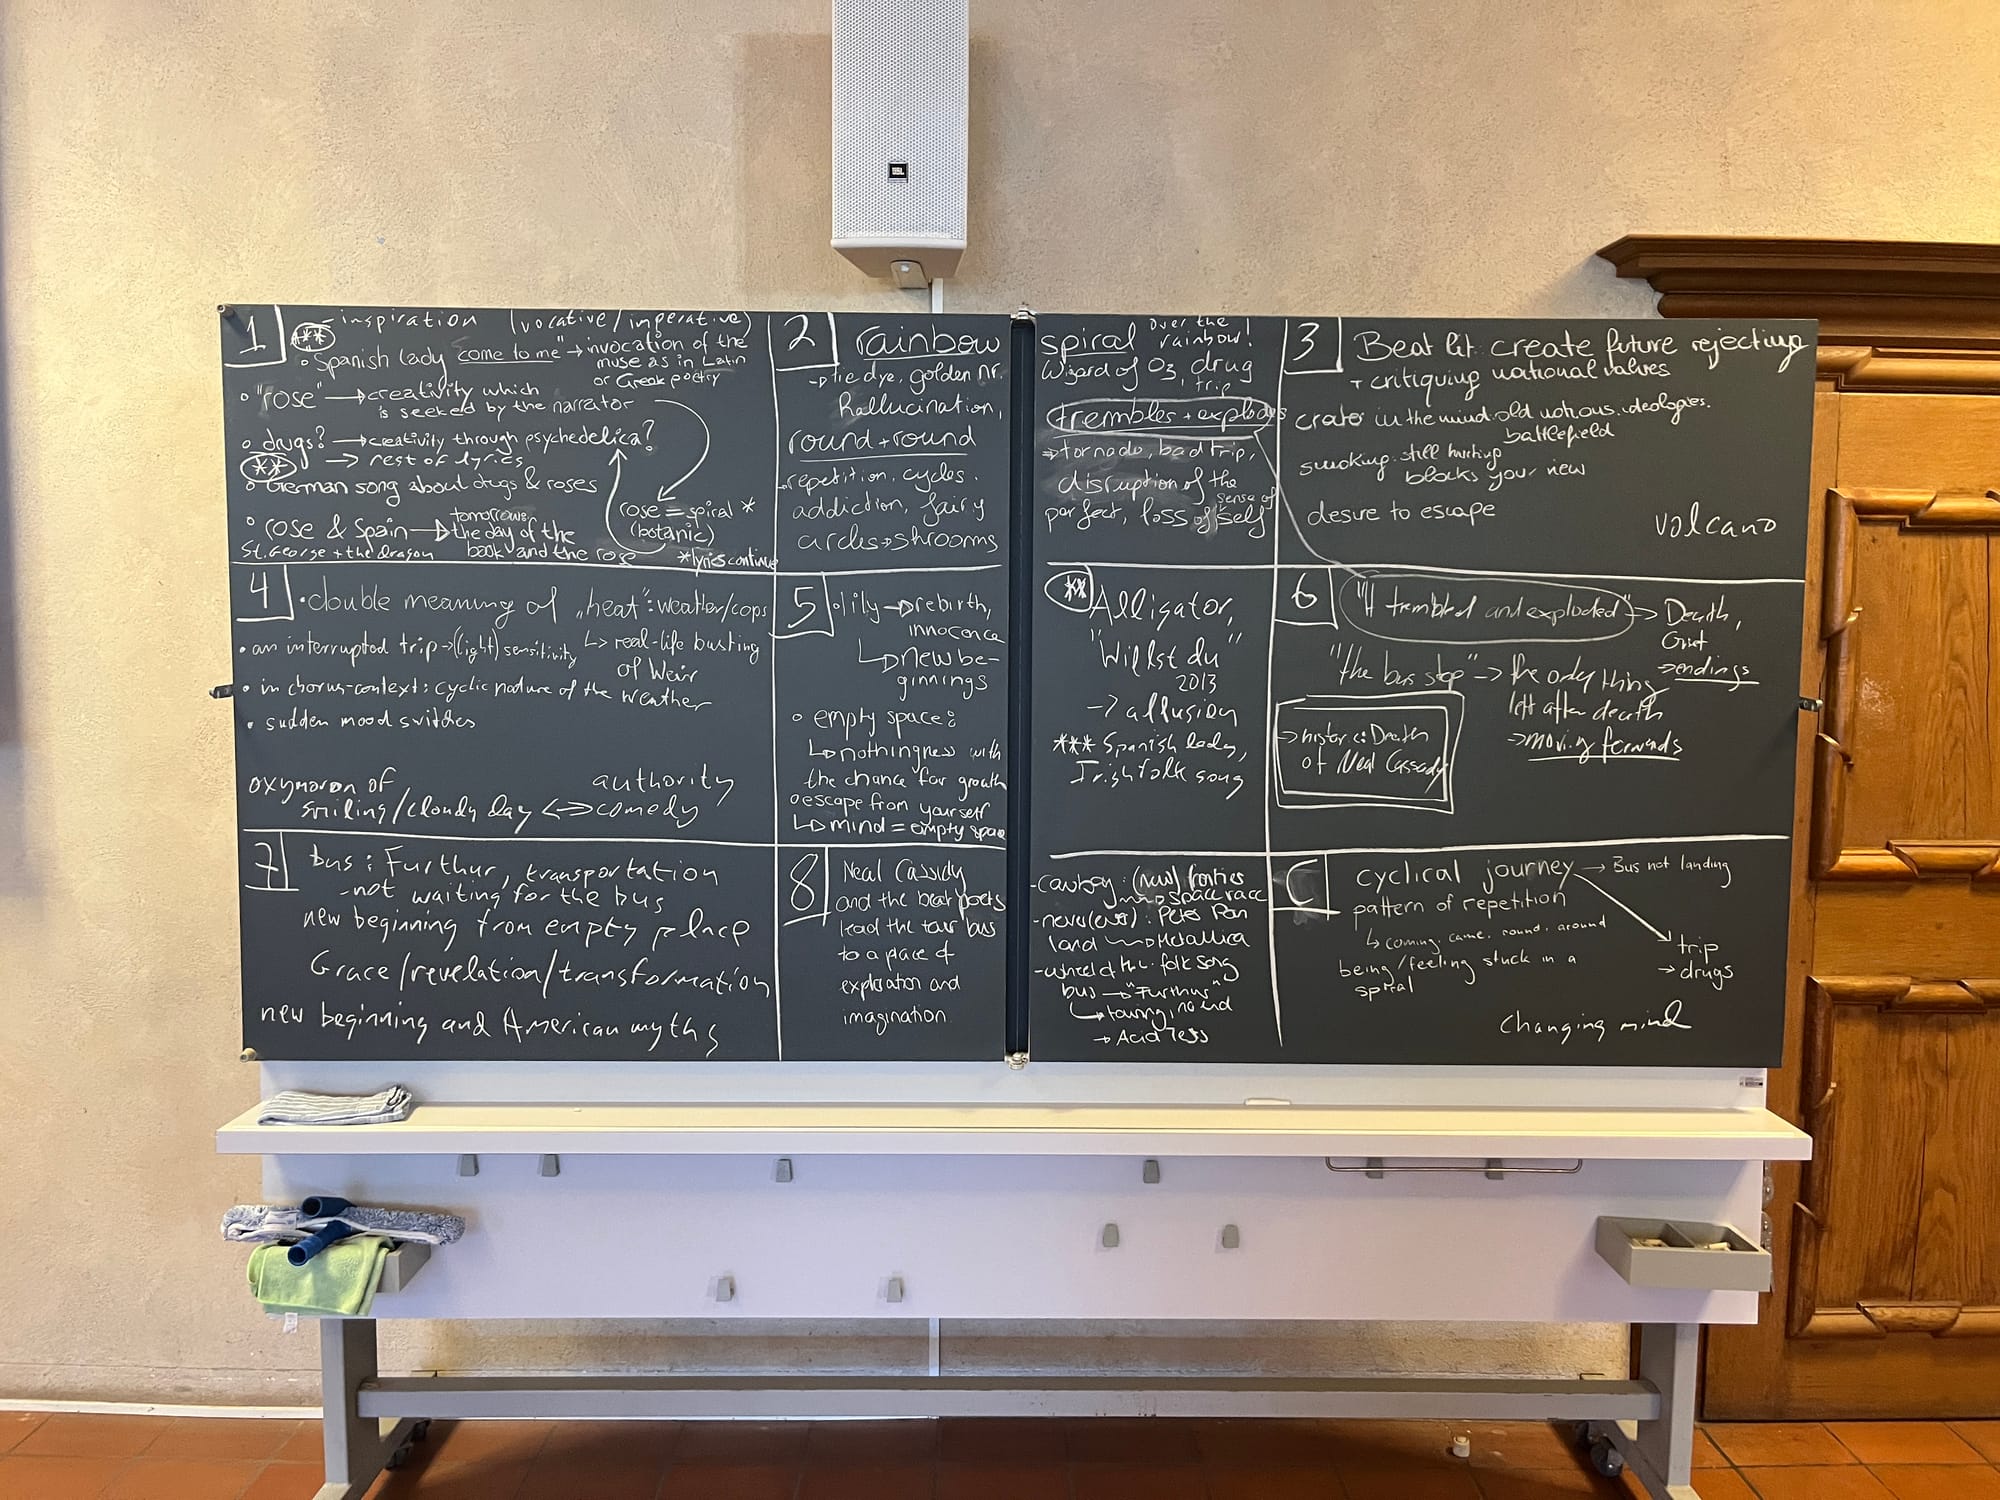 JBL
1
*** - inspiration (vocative/imperative)
° "Spanish lady come to me" → invocation of the
muse as in Latin
or Greek poetry
° "rose" → creativity which
is seeked by the narrator
° drugs? → creativity through psychedelica?
** → rest of lyrics
° German song about drugs & roses
rose = spiral *
(botanic)
° rose & Spain → tomorrow:
the day of the
book and the rose
St. George + the dragon
*lyrics continue
2
rainbow
→ tie dye, golden nr.
hallucination,
round + round
repetition, cycles.
addiction, fairy
circles → shrooms
spiral over the
rainbow!
Wizard of Oz, drug
trip
trembles + explodes
→ tornado, bad trip,
disruption of the
perfect, loss of sense of self
3
Beat lit: create future rejecting
+ critiquing national values
crater in the mind: old notions, ideologies.
battlefield
smoking: still hurting
blocks your new
desire to escape
volcano
4
• double meaning of „heat": weather/cops
• an interrupted trip → (light) sensitivity
↳ real-life busting
of Weir
• in chorus-context: cyclic nature of the weather
• sudden mood switches
oxymoron of
smiling/cloudy day <=> authority
comedy
5
• lily → rebirth,
innocence
↳ new be-
ginnings
° empty space:
↳ nothingness with
the chance for growth
° escape from yourself
↳ mind = empty space
** Alligator,
"Willst du"
2013
→ allusion
*** Spanish lady,
Irish folk song
6
"It trembled and exploded" → Death,
Grief
→ endings
"the bus stop" → the only thing
left after death
→ moving forwards
→ historic: Death
of Neal Cassady
7
bus: Furthur, transportation
- not waiting for the bus
new beginning from empty place
Grace/revelation/transformation
new beginning and American myths
8
Neal Cassidy
and the beat poets
lead the tour bus
to a place of
exploration and
imagination
- cowboy: (new) frontier
→ space race
- never(ever): Peter Pan
land → Metallica
- wheel of the: folk song
bus → "Furthur"
↳ touring, no end
→ Acid Tests
C
cyclical journey → Bus not landing
pattern of repetition
↳ coming, came, round, around
trip
→ drugs
being/feeling stuck in a
spiral
Changing mind